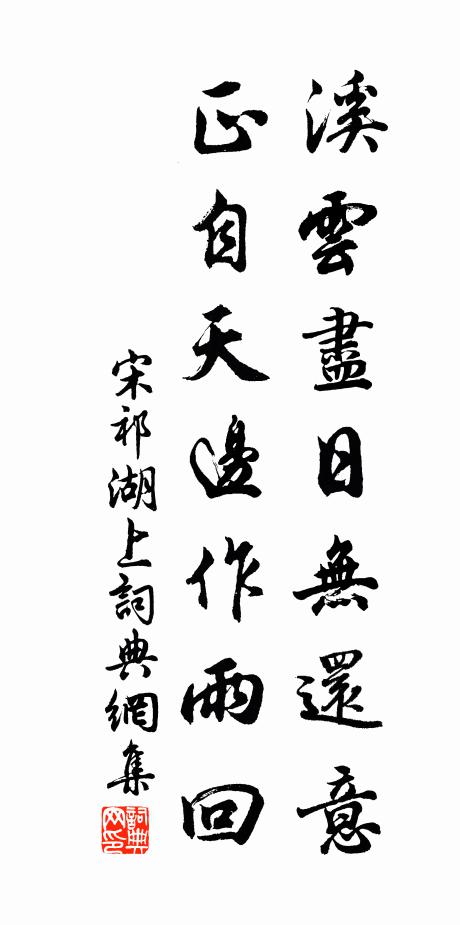 溪雲盡日無還意
正自天邊作雨回
宋祁湖上詞典網集
詞典
網印